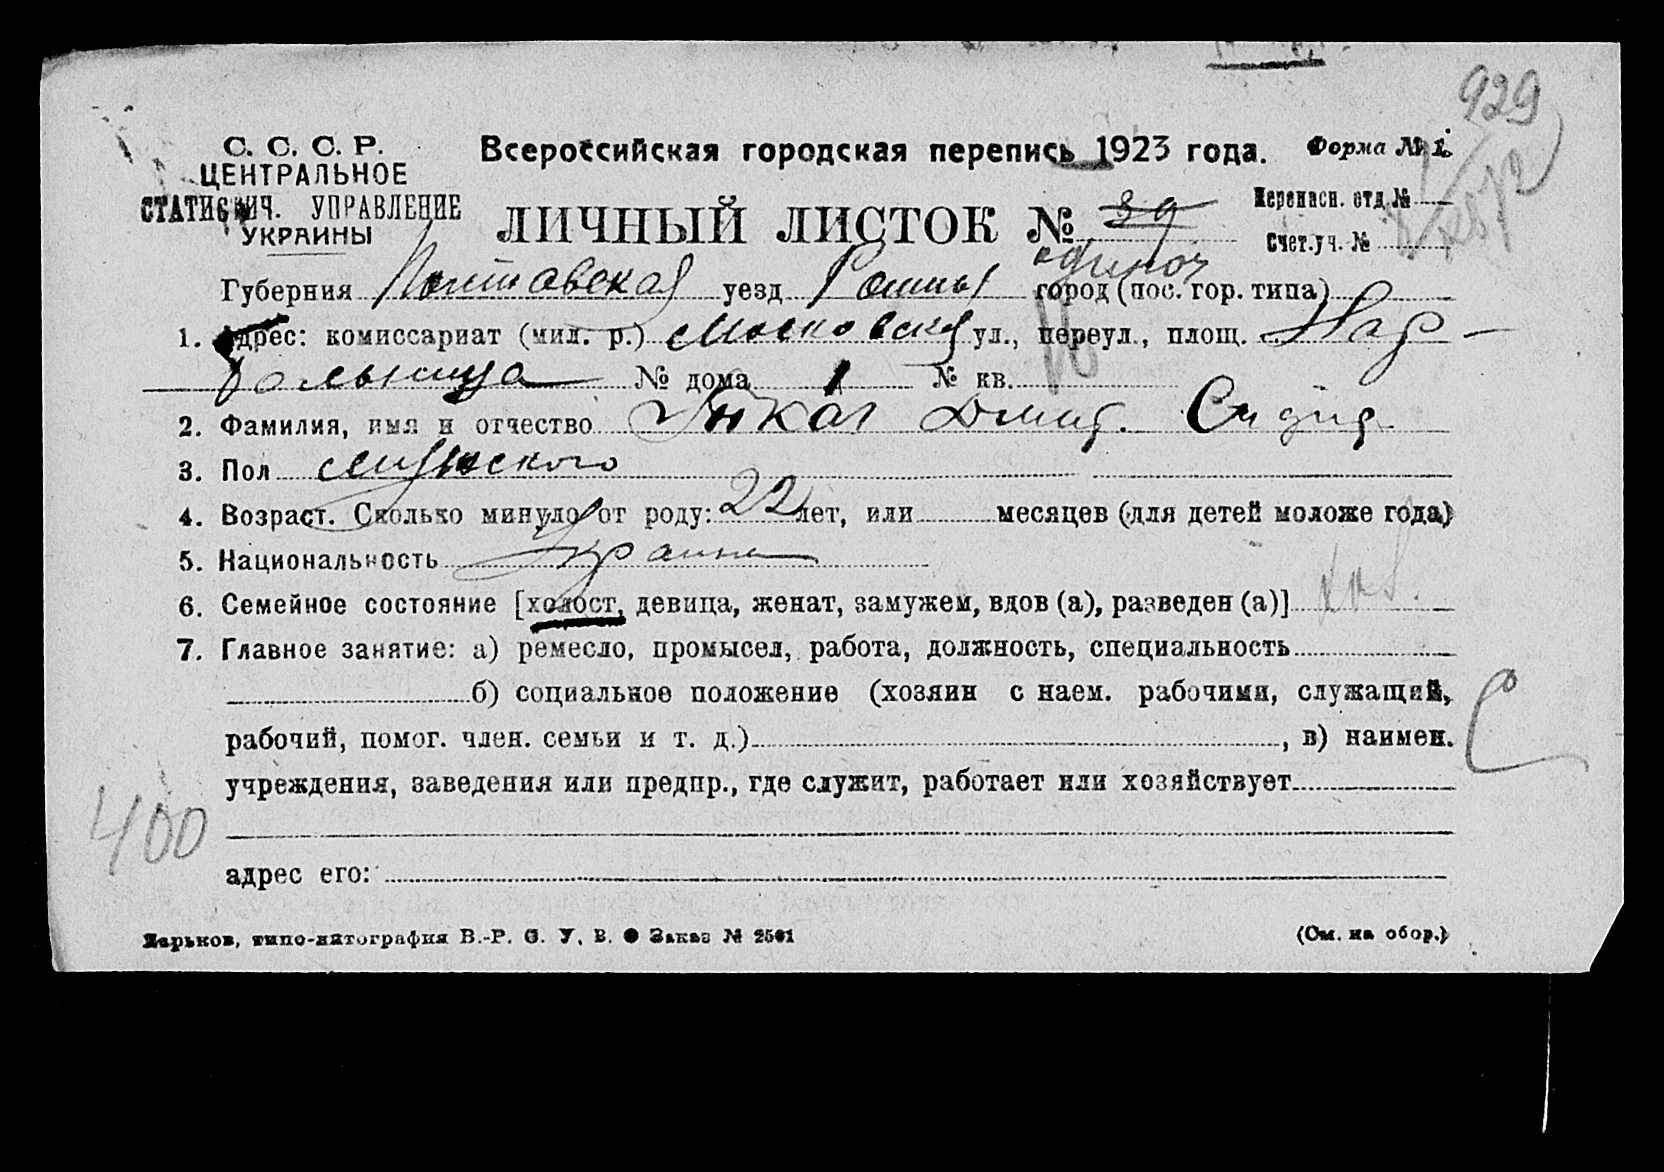 929
С. С. С. Р.
ЦЕНТРАЛЬНОЕ
СТАТИСТИЧ. УПРАВЛЕНИЕ
УКРАИНЫ
Всероссийская городская перепись 1923 года.
Форма № 1.
ЛИЧНЫЙ ЛИСТОК № 39
Переписн. отд. №
Счет. уч. №
одиноч
Губерния Полтавская уезд Ромны город (пос. гор. типа)
1. Адрес: комиссариат (мил. р.) Московская ул., переул., площ. Нар-
больница № дома 1 № кв.
2. Фамилия, имя и отчество Дмит.
3. Пол мужского
4. Возраст. Сколько минуло от роду: 22 лет, или месяцев (для детей моложе года)
5. Национальность Украин
6. Семейное состояние [холост, девица, женат, замужем, вдов (а), разведен (а)] хол.
7. Главное занятие: а) ремесло, промысел, работа, должность, специальность
б) социальное положение (хозяин с наем. рабочими, служащий,
рабочий, помог. член. семьи и т. д.) , в) наимен.
С
учреждения, заведения или предпр., где служит, работает или хозяйствует
400
адрес его:
Харьков, типо-литография В.-Р. С. У. В. Заказ № 2501
(См. на обор.)